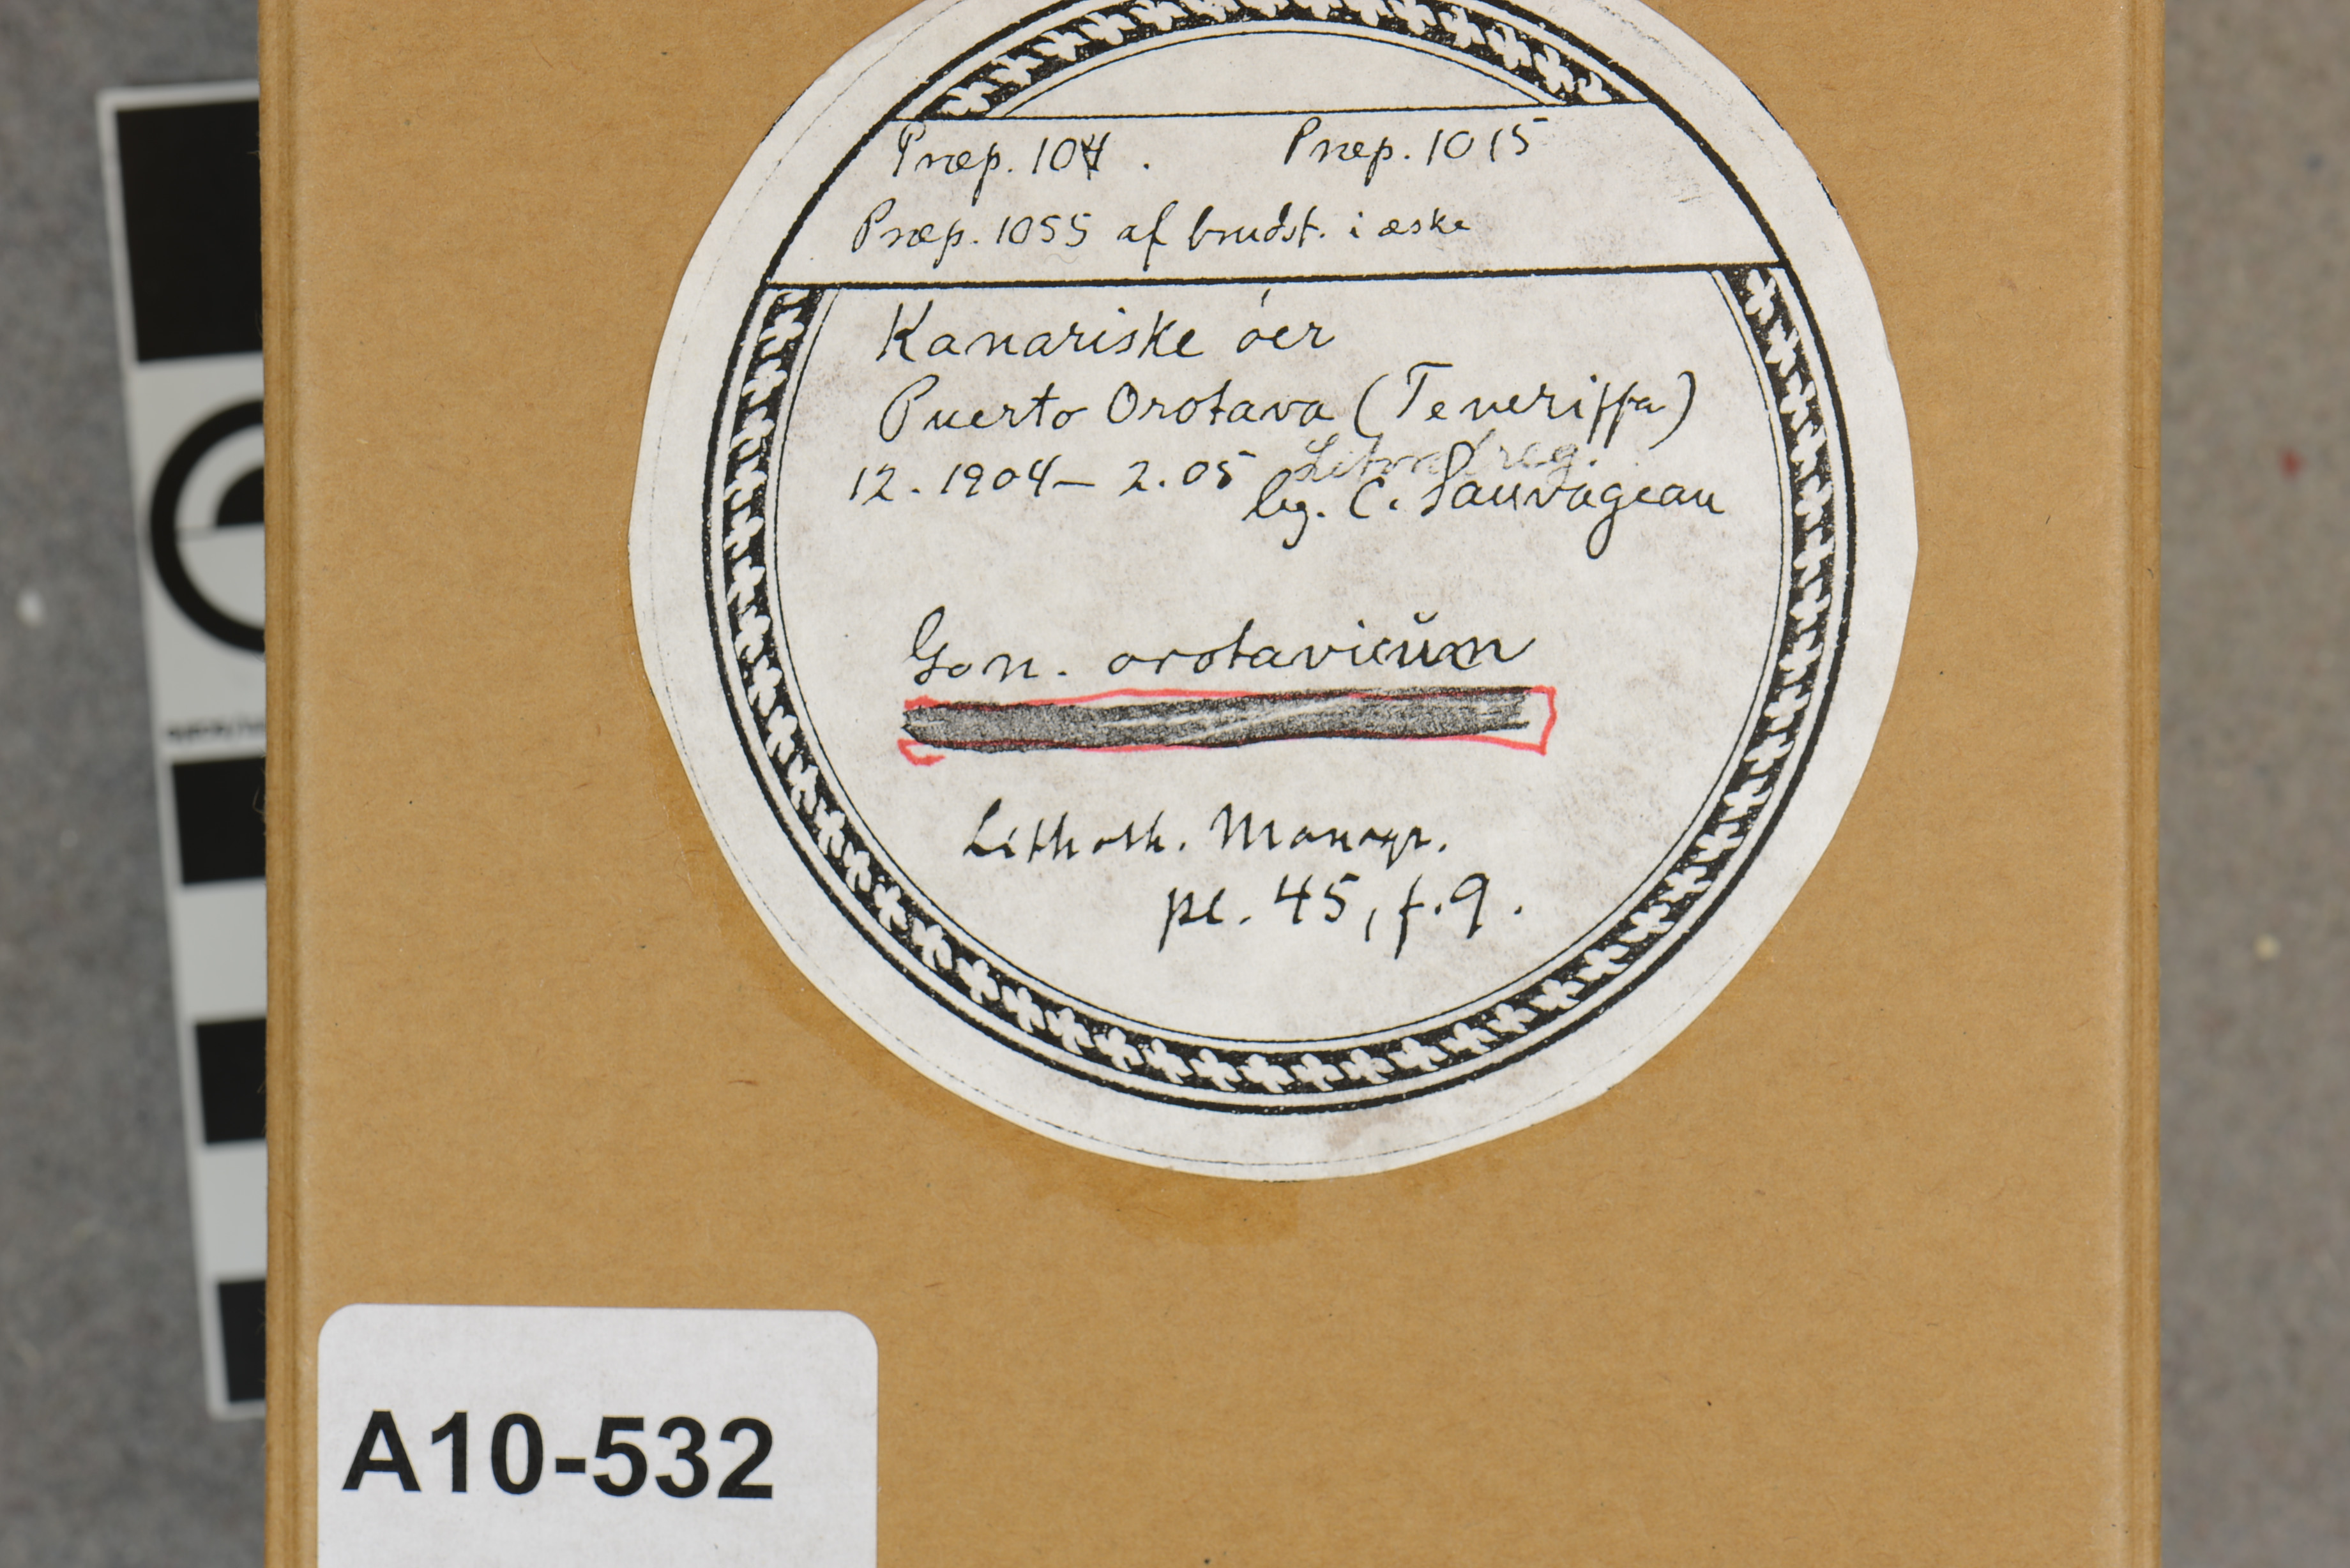 Præp. 104 . Præp. 1015
Præp. 1055 af brudst. i æske
Kanariske óer
Puerto Orotava (Teneriffa)
12.1904 – 2.05
leg. C. Sauvageau
Gon. orotavicŭm
Lithoth. Monogr.
pl. 45, f. 9.
A10-532